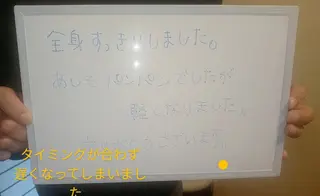 全身すっきりしました。
あしもパンパンでしたが
軽くなりました。
ございます
タイミングが合わず
遅くなってしまいまし
た